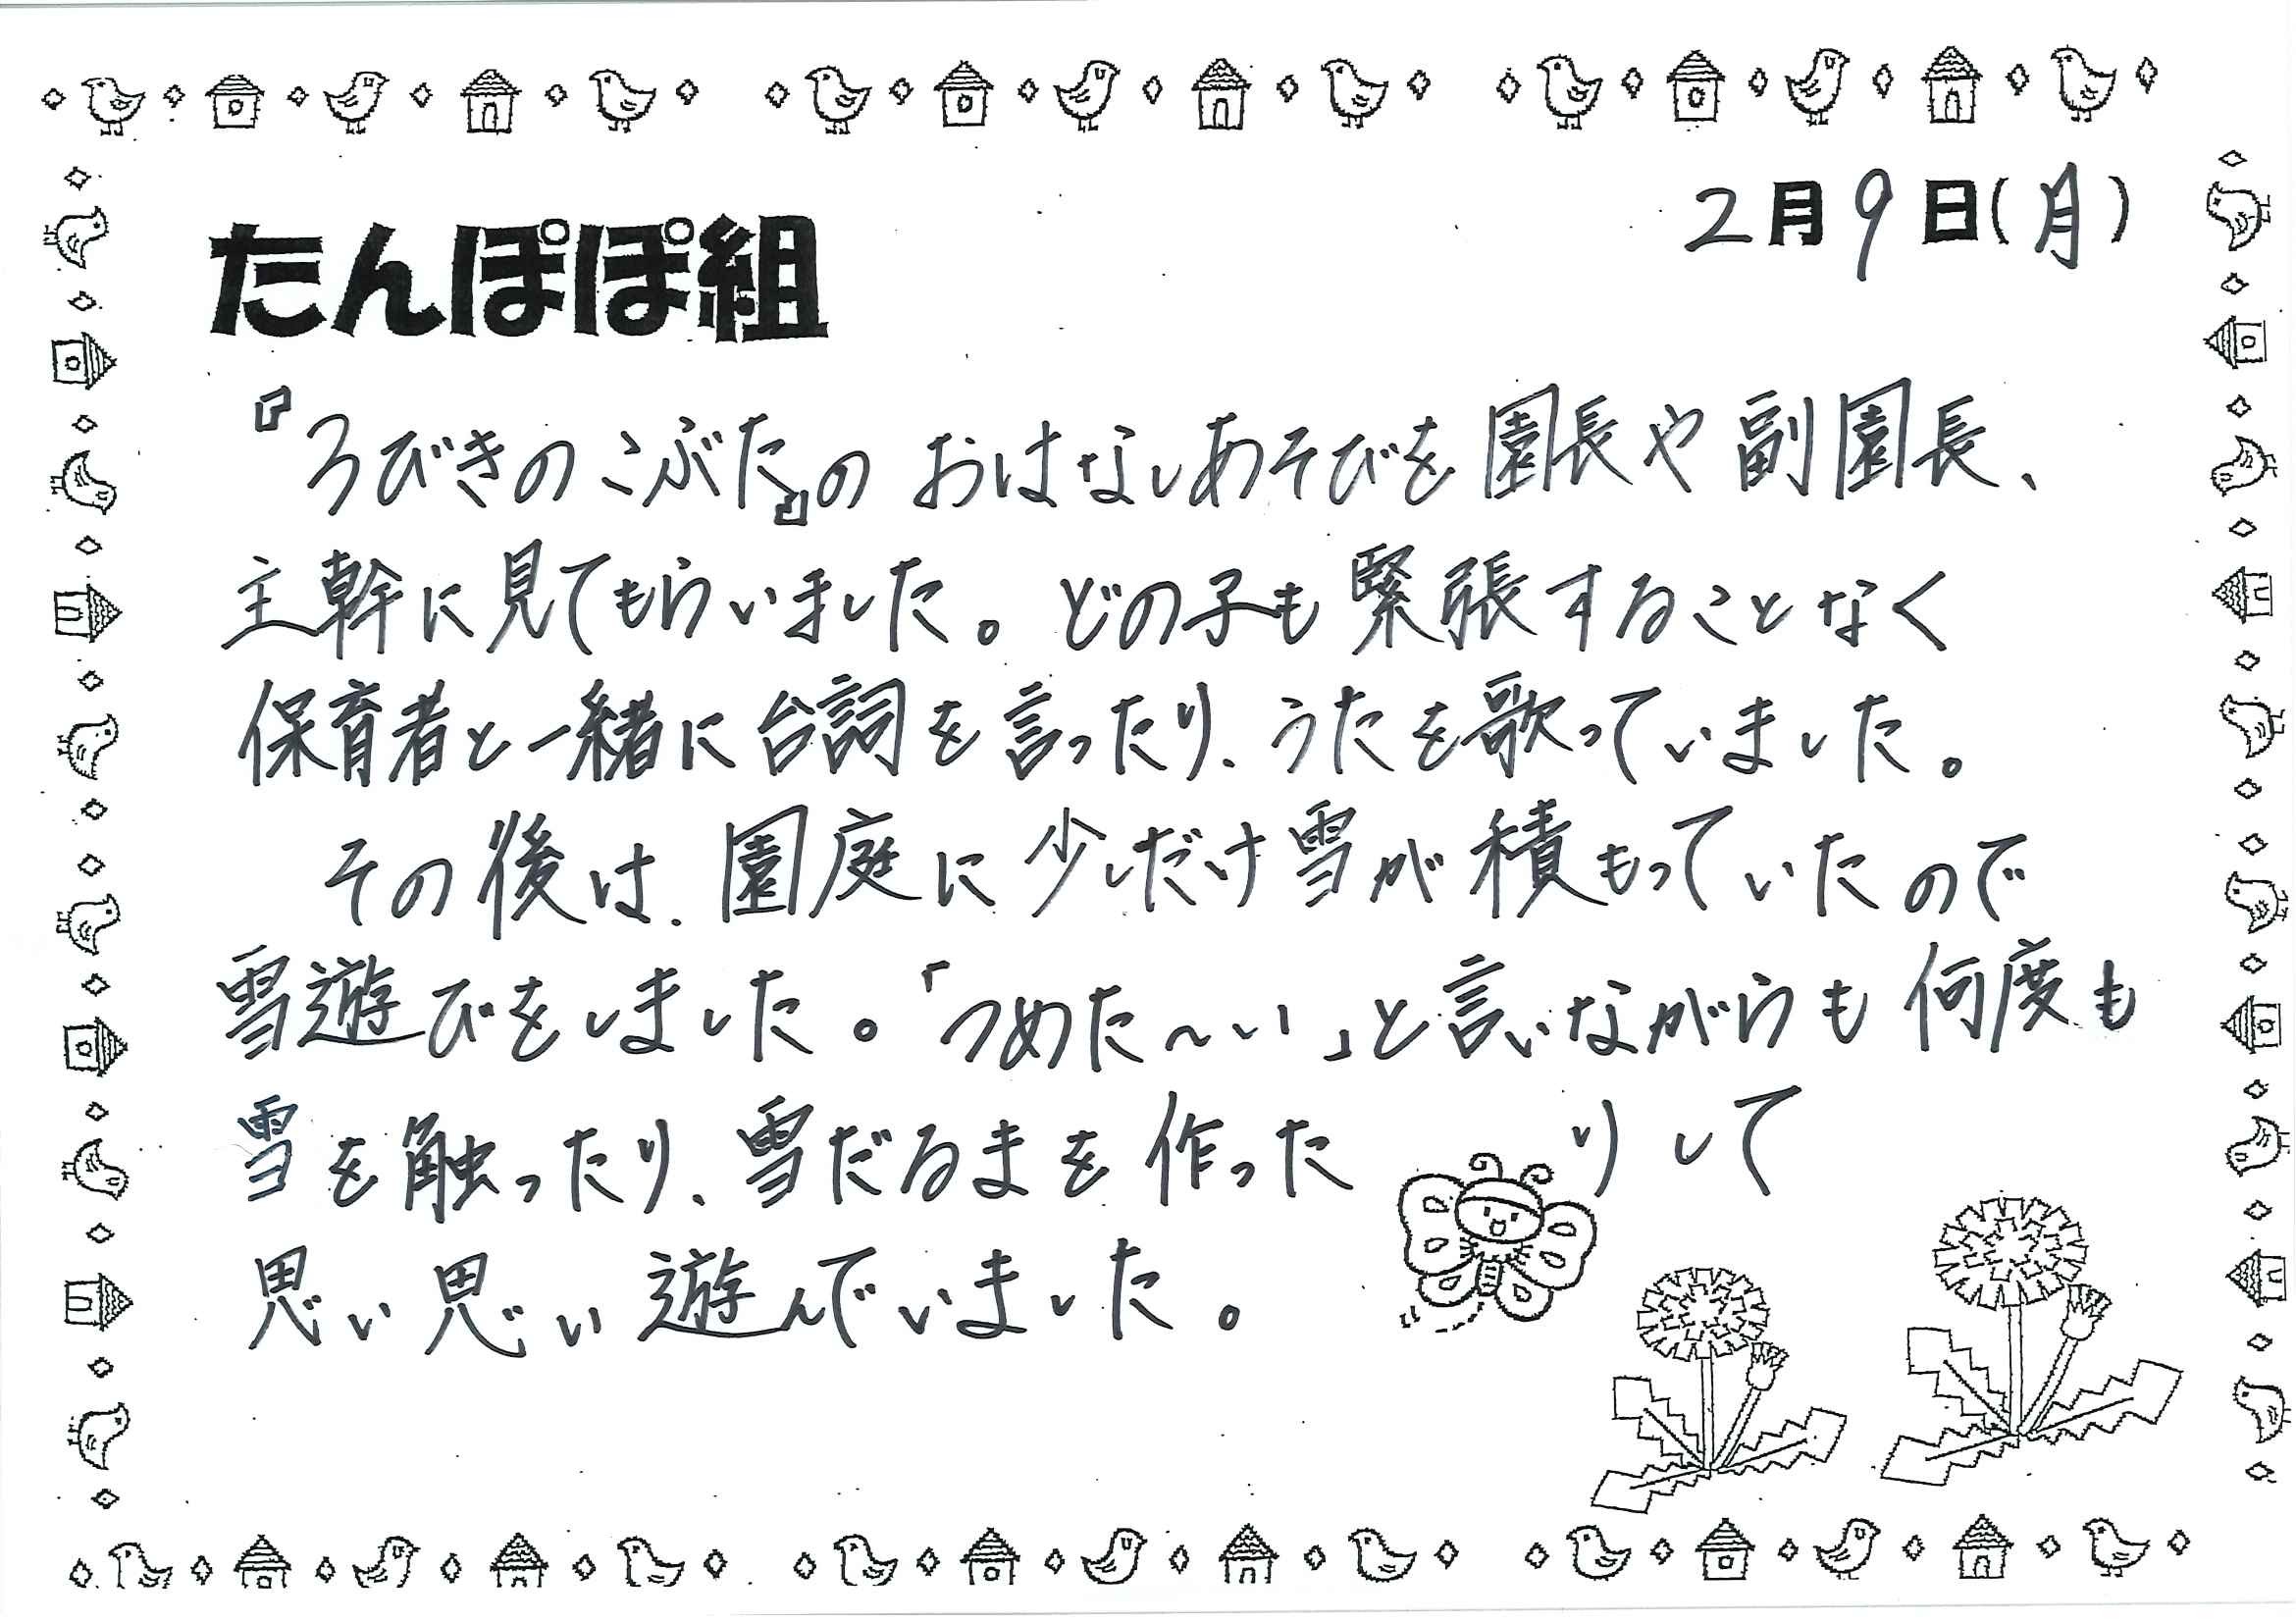 2月9日(月)
たんぽぽ組
『3びきのこぶた』のおはなしあそびを園長や副園長、
主幹に見てもらいました。どの子も緊張することなく
保育者と一緒に台詞を言ったり、うたを歌っていました。
その後は、園庭に少しだけ雪が積もっていたので
雪遊びをしました。「つめた〜い」と言いながらも何度も
雪を触ったり、雪だるまを作ったりして
思い思い遊んでいました。